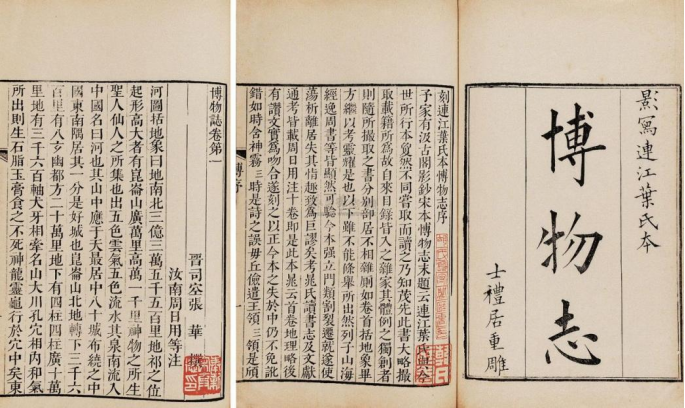 影寫連江葉氏本
博物志
士禮居重雕
刻連江葉氏本博物志序
予家有汲古閣影鈔宋本博物志末題云連江葉氏與今
世所行本夐然不同嘗取而讀之乃知茂先此書大略撮
取載籍所為故自來目錄皆入之雜家其體例之獨創者
則隨所撮取之書分別部居不相雜廁如卷首括地象畢
方繼以考靈耀是也以下雖不能條舉所出然列于山海
經逸周書等皆顯然可驗今本强立門類割裂遷就遂使
蕩析離居失其指趣致為巨謬矣考晁氏讀書志及文獻
通考皆載周日用注十卷即是此本晁云首卷地理略後
有讚文實為吻合遂刻之以正今本之失於中仍不免訛
錯如時含神霧三時是詩之誤毋丘儉遣王領三領是頎
博序
博物誌卷第一
晉司空張華撰
汝南周日用等注
河圖括地象曰地南北三億三萬五千五百里地祁之位
起形高大者有崐崙山廣萬里高萬一千里神物之所生
聖人仙人之所集也出五色雲氣五色流水其泉南流入
中國名曰河也其山中應于天最居中八十城布繞之中
國東南隅居其一分是好城也崐崙山北地轉下三千六
百里有八玄幽都方二十萬里地下有四柱四柱廣十萬
里地有三千六百軸犬牙相牽名山大川孔穴相内和氣
所出則生石脂玉膏食之不死神龍靈龜行於穴中矣東